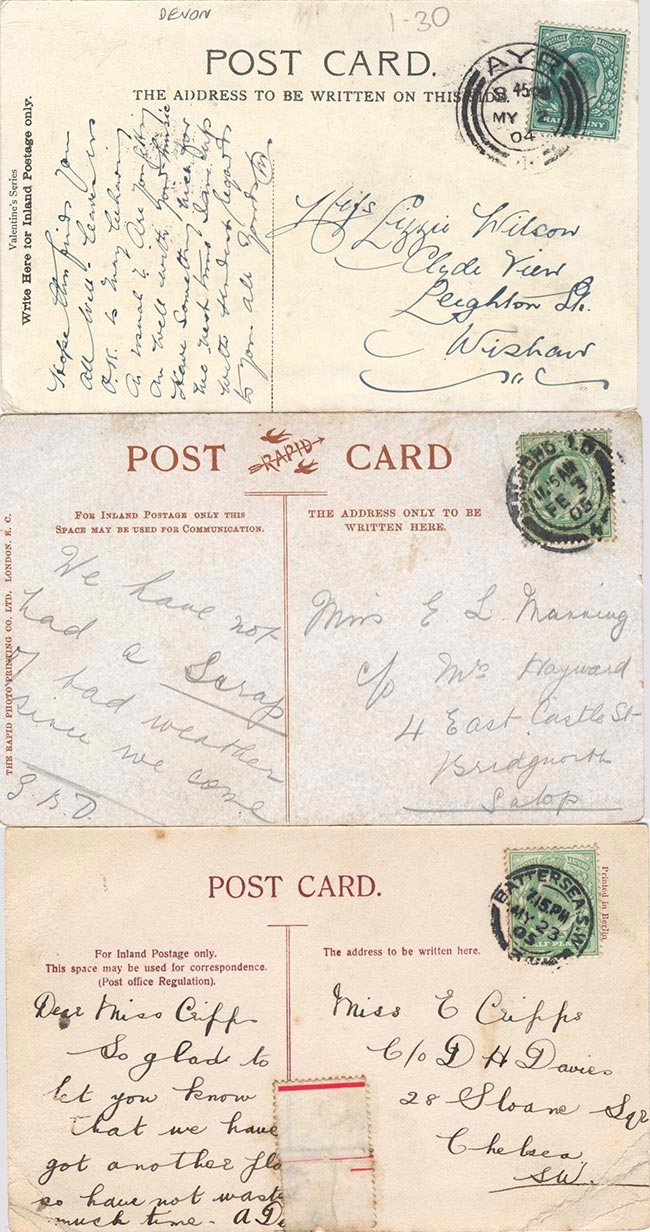 DEVON
1-30
POST CARD.
THE ADDRESS TO BE WRITTEN ON THIS SIDE.
AYR
8 45PM
MY 2
04
HALFPENNY
Valentine's Series
Write Here for Inland Postage only.
Hope this finds you
all well. Leaves us
O.K. to May
as usual?. Are you
an well with your music
Have something nice for
me next time I
with kindest regards
to you all
Miss Lizzie Wilson
Clyde View
Leighton St.
Wishaw
POST RAPID CARD
FOR INLAND POSTAGE ONLY THIS
SPACE MAY BE USED FOR COMMUNICATION.
THE ADDRESS ONLY TO BE
WRITTEN HERE.
11.15AM
FE
05
THE RAPID PHOTO PRINTING CO. LTD. LONDON. E. C.
We have not
had a Scrap
of bad weather
since we come
G.B.D.
Miss E L Manning
c/o Mrs Hayward
4 East Castle St
Bridgnorth
Salop
POST CARD.
BATTERSEA S.W.
7.15.PM
MY 23
05
HALF PEN
Printed in Berlin.
For Inland Postage only.
This space may be used for correspondence.
(Post office Regulation).
The address to be written here.
Dear Miss Cripps
So glade to
let you know
that we have
got another fla
so have not waste
much time - A D
Miss E Cripps
C/o D H Davies
28 Sloane Sqr
Chelsea
SW.